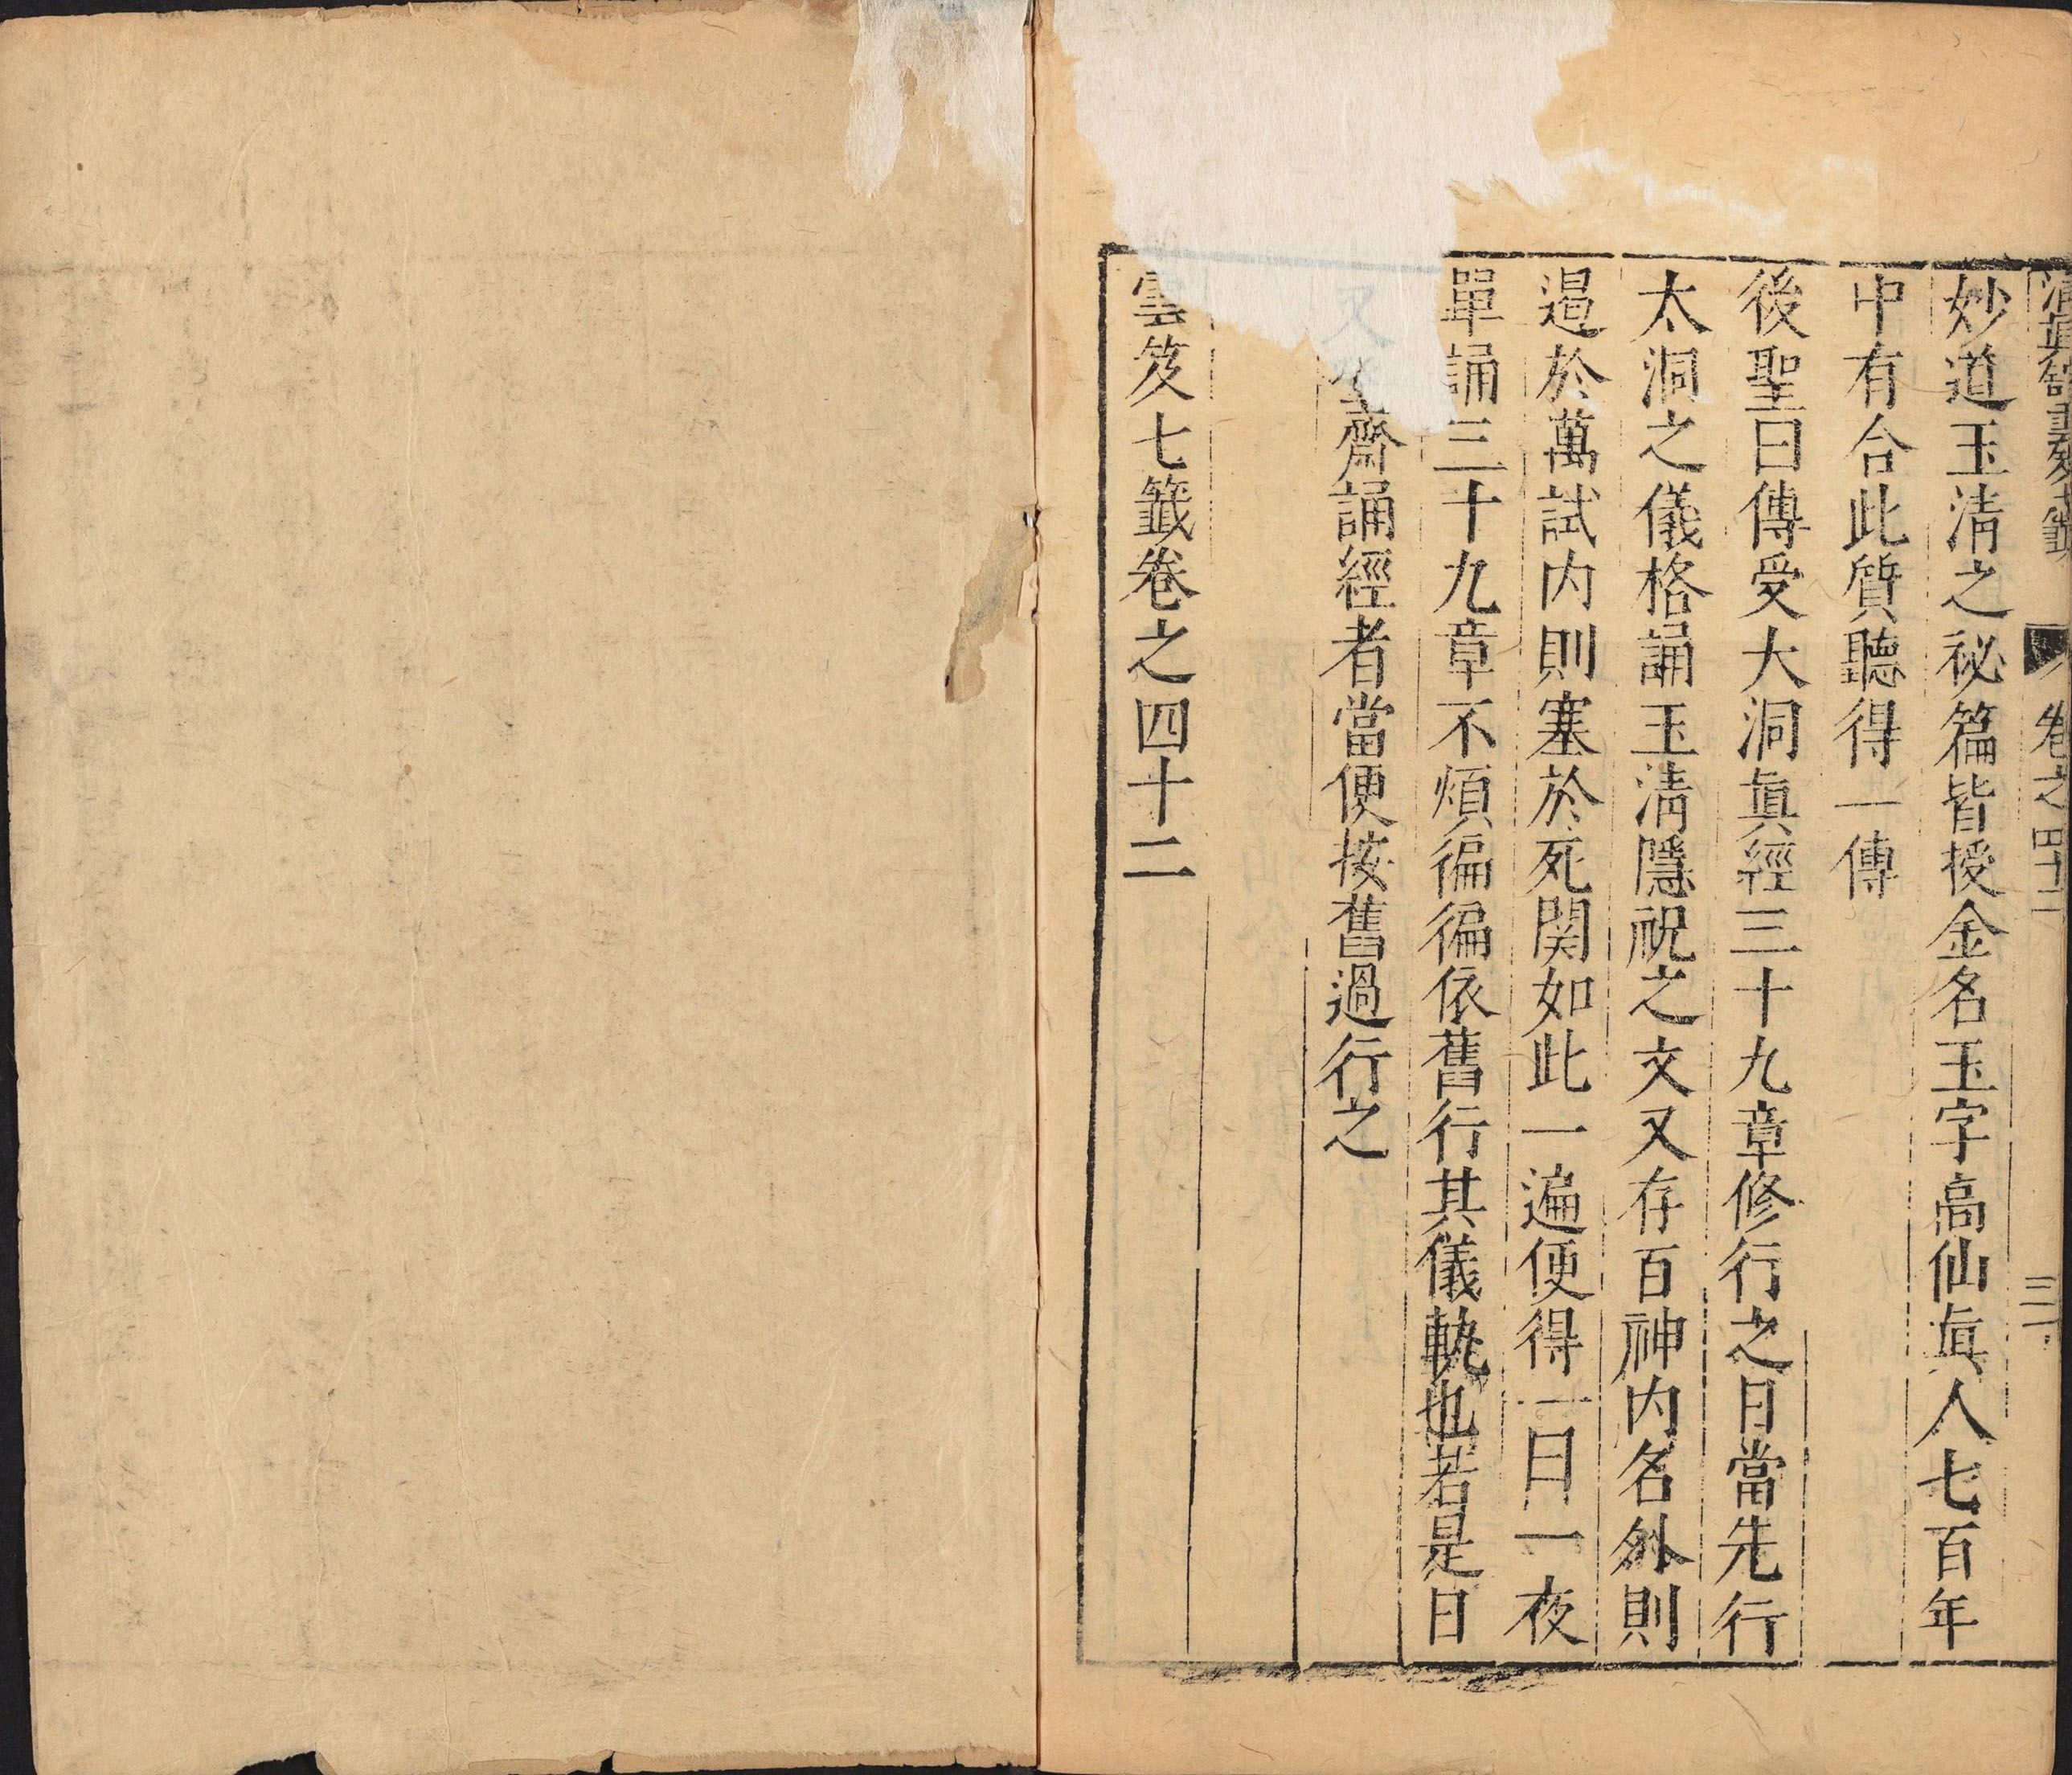 清眞館 雲笈七籤 卷之四十二 三二
妙道玉淸之祕篇皆授金名玉字高仙眞人七百年
中有合此質聽得一傳
後聖曰傳受大洞眞經三十九章修行之日當先行
太洞之儀格誦玉淸隱祝之文又存百神內名外則
遏於萬試内則塞於死関如此一遍便得一日一夜
單誦三十九章不煩徧徧依舊行其儀軌也若是日
又 齋誦經者當便按舊過行之
雲笈七籤卷之四十二